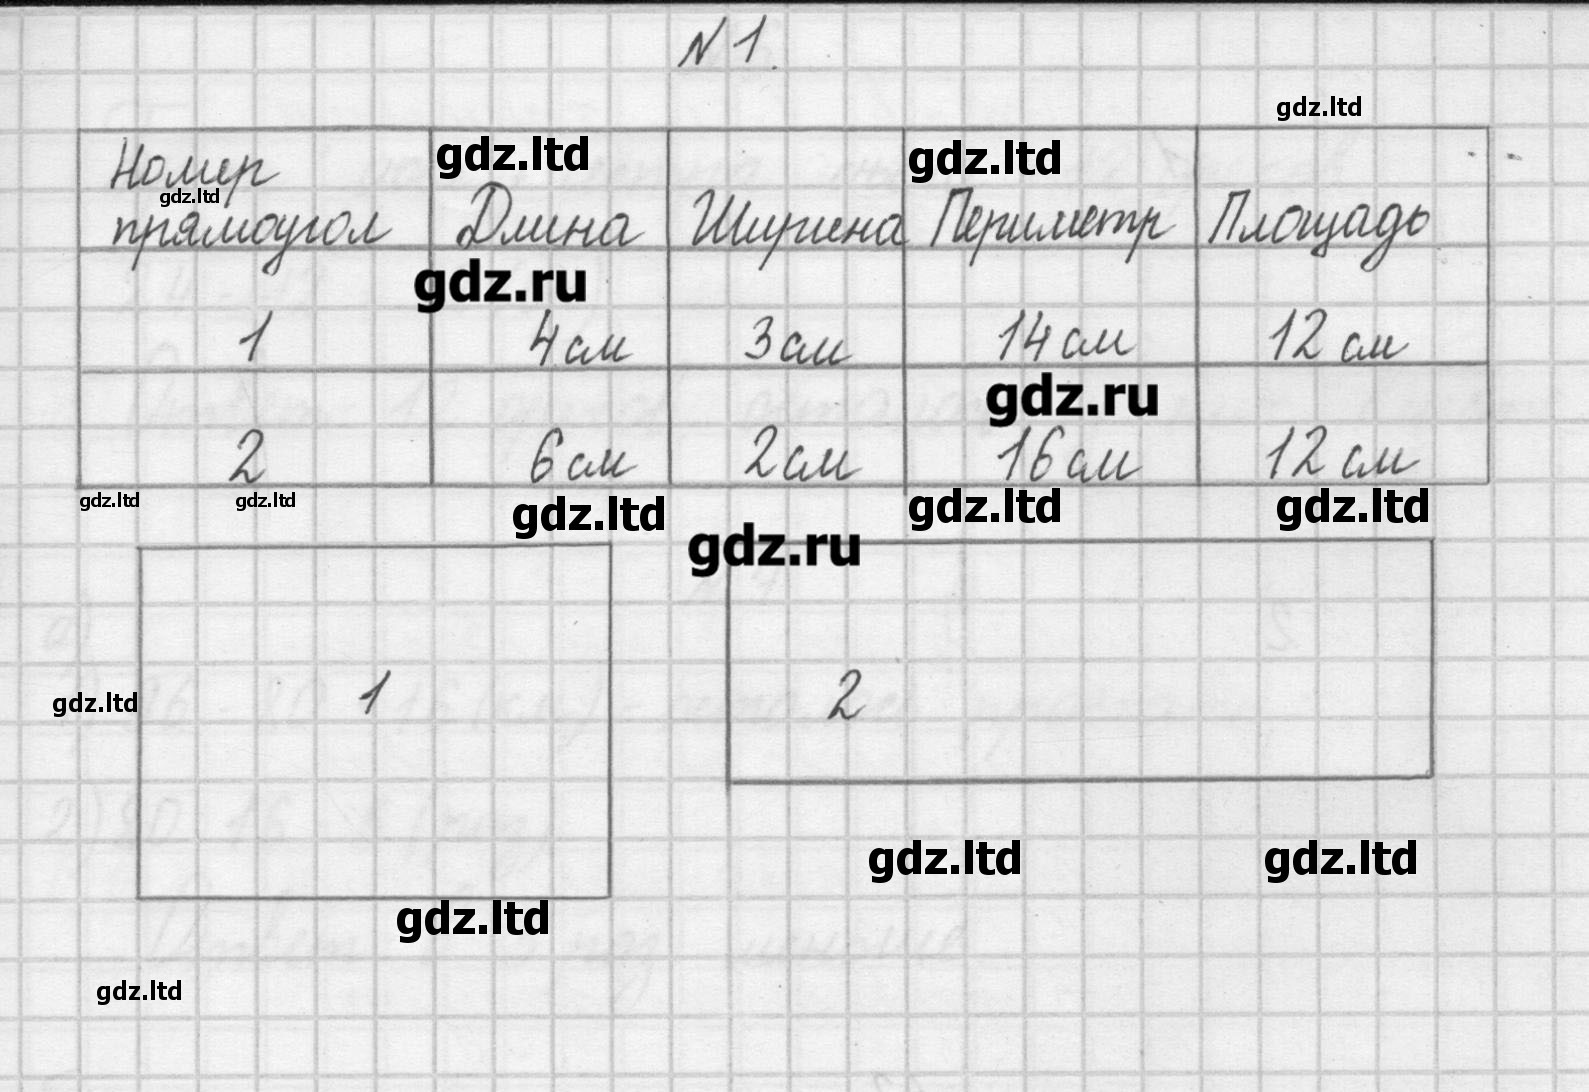 № 1.
gdz.ltd
Номер
gdz.ltd
gdz.ltd
gdz.ltd
прямоугол Длина Ширина Периметр Площадь
gdz.ru
1 4 см 3 см 14 см 12 см
gdz.ru
2 6 см 2 см 16 см 12 см
gdz.ltd gdz.ltd gdz.ltd gdz.ltd gdz.ltd
gdz.ru
gdz.ltd 1 2
gdz.ltd gdz.ltd
gdz.ltd
gdz.ltd